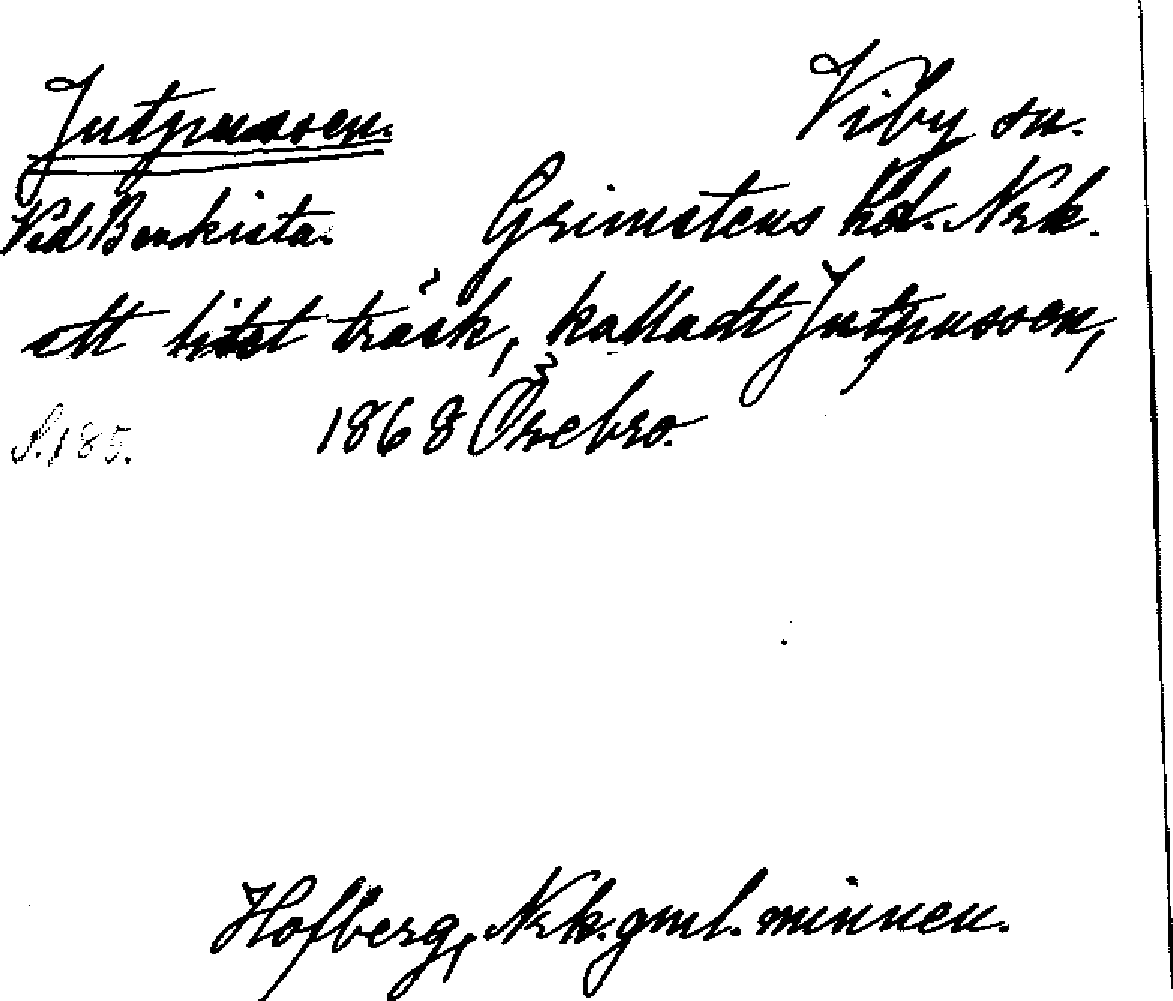 Jutpussen. Viby sn.
Ved Benkista. Grimstens hd. Nrk.
ett litet träsk, kalladt Jutpussen,
S. 185. 1868 Örebro.
Hofberg, Nrk. gml. minnen.